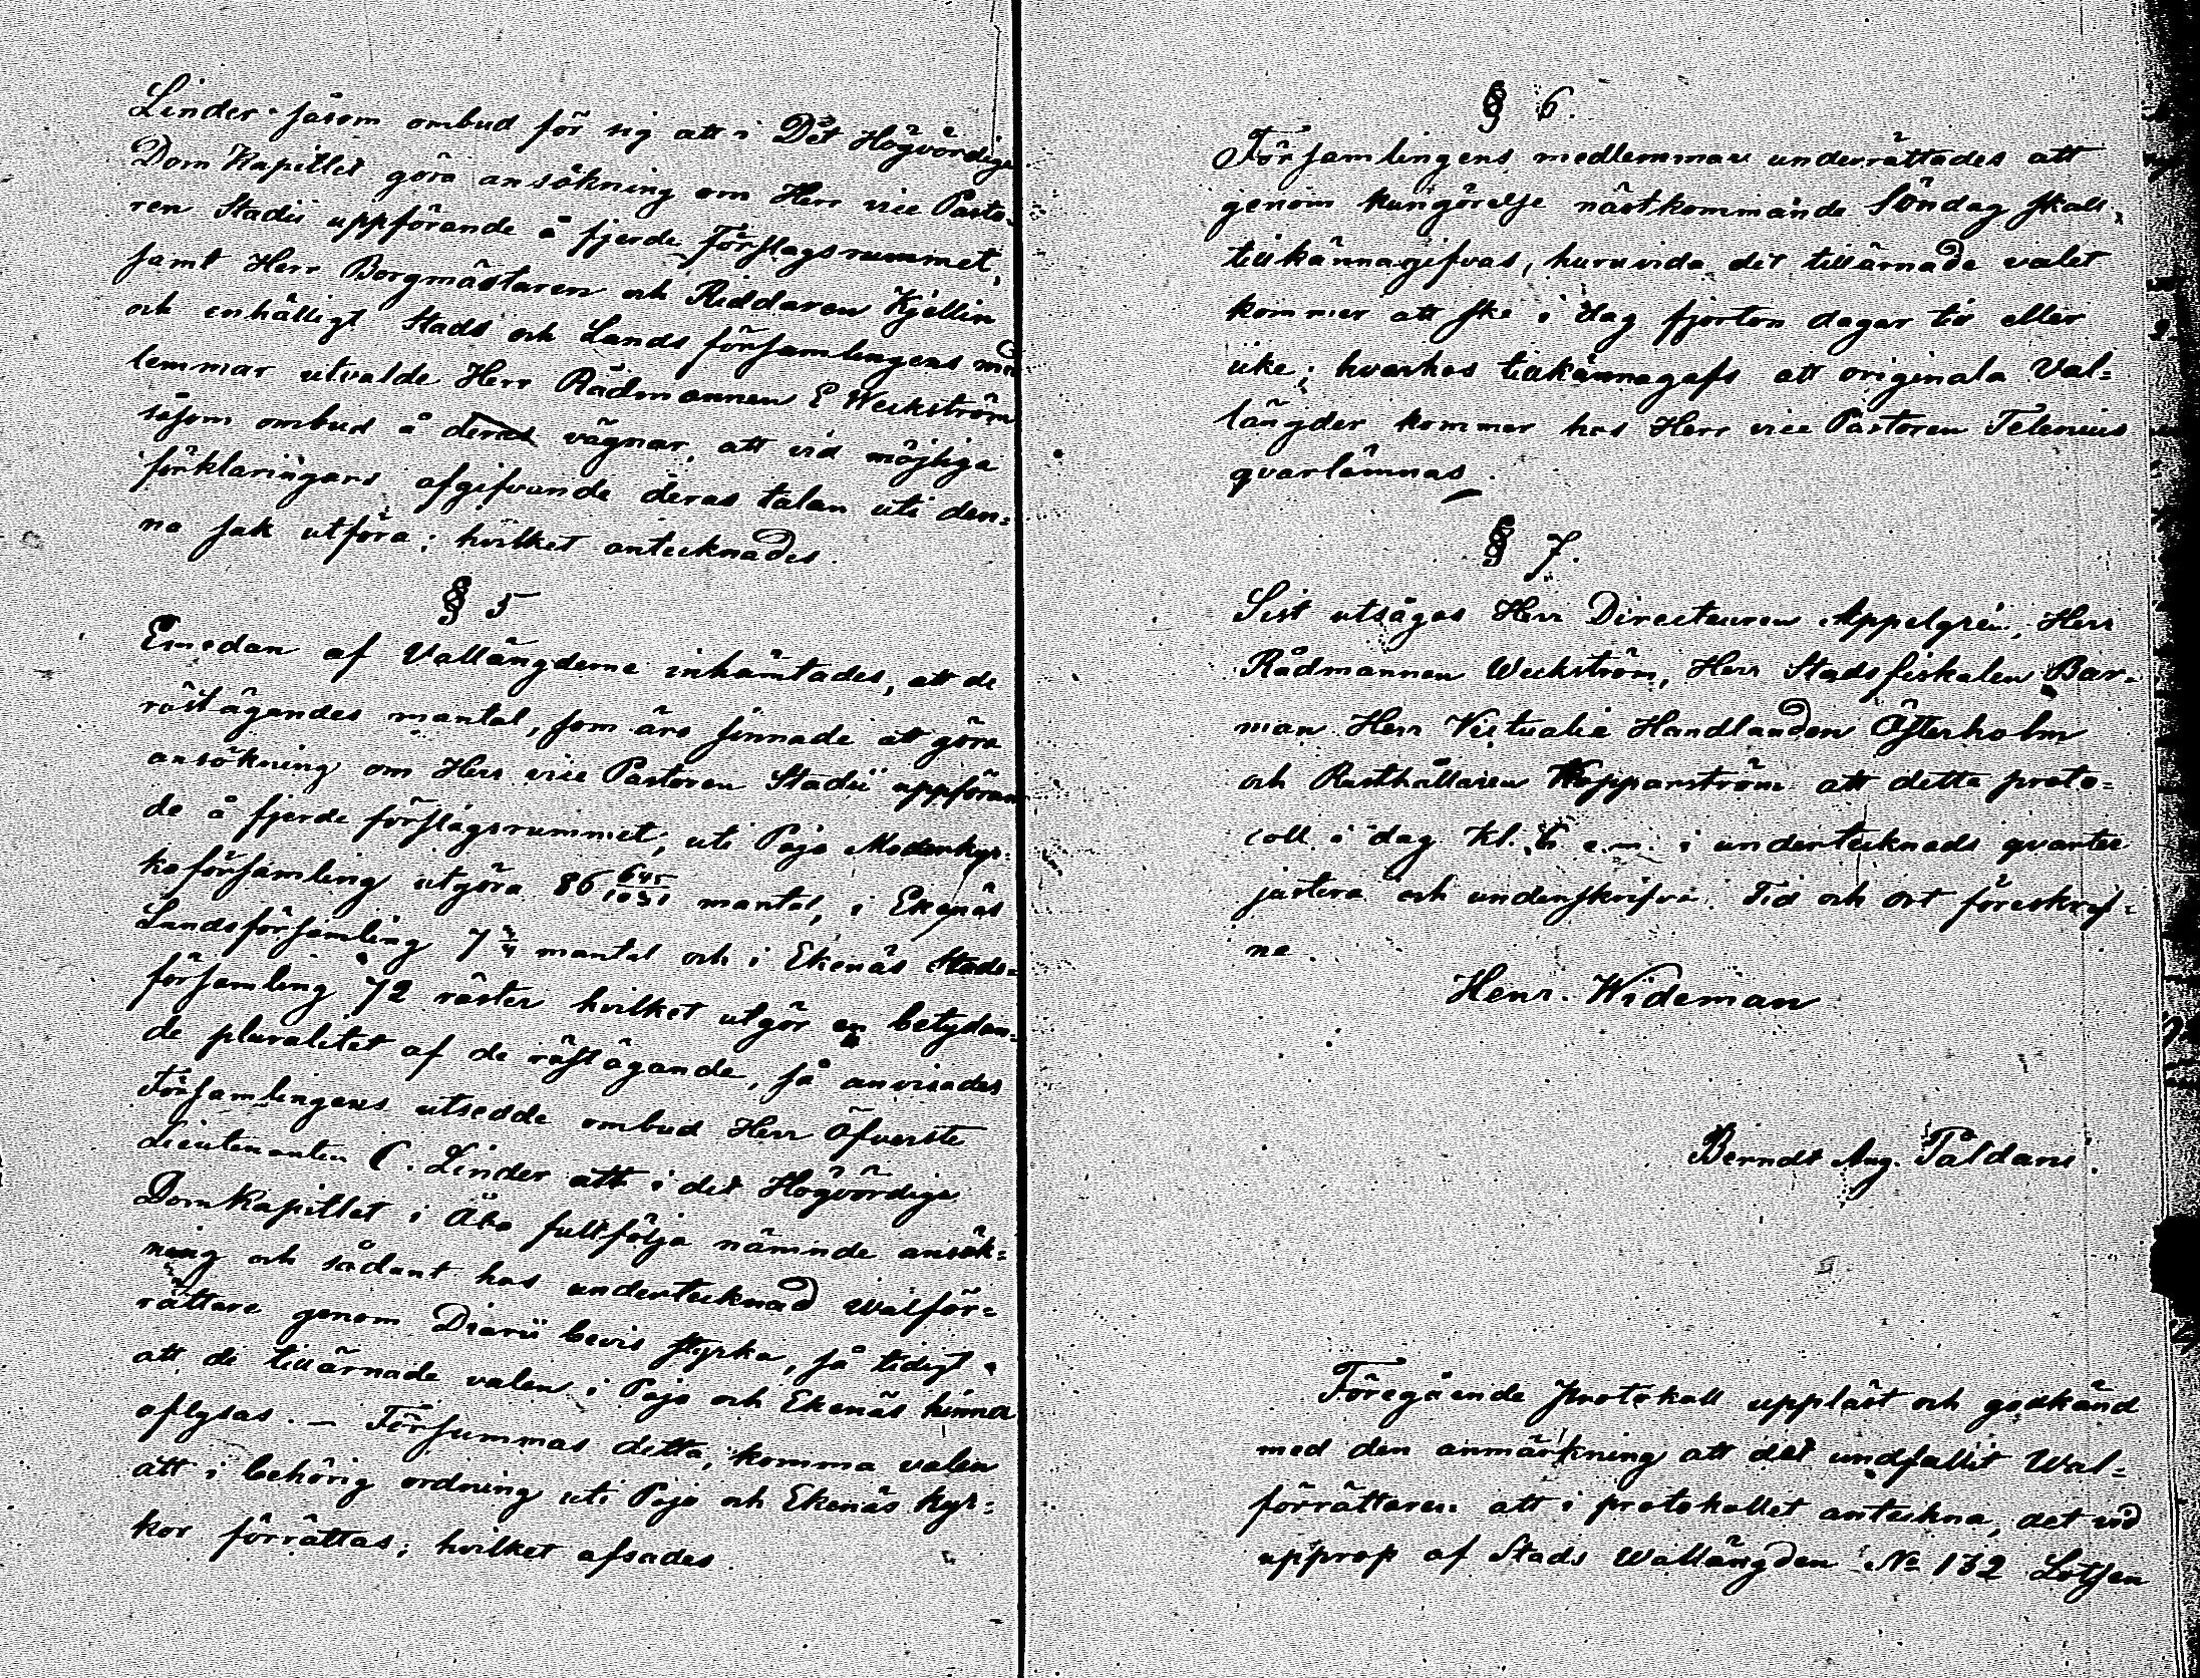 Linder såsom ombud för sig att i Det Högvördige
Dom Kapitlet göra ansökning om Herr vice Pasto-
ren Stadii uppförande å fjerde förslagsrummet,
samt Herr Borgmästaren och Riddaren Kjellin
och enhälligt Stads och Lands församlingens med
lemmar utvalde Herr Rådmannen E Weckström
såsom ombud å deras vägnar, att vid möjliga
förklaringars afgifvande deras talan uti den=
na sak utföra; hvilket antecknades.
§ 5
Emedan af Vallängderne inhämtades, att de
röstägandes mantal, som äro sinnade att göra
ansökning om Herr vice Pastoren Stadii uppföran
de å fjerde förslagsrummet, uti Pojo Moderkyr=
koförsamling utgöra 86 mantal, i Ekenäs
Landsförsamling 7 3/4 mantal och i Ekenäs Stads=
församling 72 röster hvilket utgör en betydan=
de pluralitet af de röstägande, så anvisades
Församlingens utsedde ombud Herr Öfverste
Lieutenanten C. Linder att i det Högvördige
Domkapitlet i Åbo fullfölja nämnde ansök=
ning och sådant hos undertecknad valför=
rättare genom Diarii bevis styrka, så tidigt,
att de tillärnade valen i Pojo och Ekenäs hinna
aflysas. — Försummas detta, komma valen
att i behörig ordning uti Pojo och Ekenäs kyr=
kor förrättas; hvilket afsades
§ 6.
Församlingens medlemmar underrättades att
genom kungörelse nästkommande Söndag skall
tillkännagifvas, huruvida det tillärnade valet
kommer att ske i dag fjorton dagar til eller
icke; hvarhos tillkännagafs att originala Val=
längder kommer hos Herr vice Pastoren Telenius
qvarlämnas.
§ 7.
Sist utsågos Herr Directeuren Appelgrén, Herr
Rådmannen Weckström, Herr Stadsfiskalen Bar=
man Herr Victualie Handlanden Österholm
och Rusthållaren Kopparström att detta proto=
coll i dag Kl. 6 e.m. i undertecknads qvarter
justera och underskrifva. Tid och ort föreskref=
ne.
Henr. Wideman
Berndt Aug. Påldani.
Föregående Protokoll uppläst och godkänd
med den anmärkning att det undfallit Wal=
förrättaren att i protokollet anteckna, det vid
upprop af Stads Wallängden No 132 Lotsen